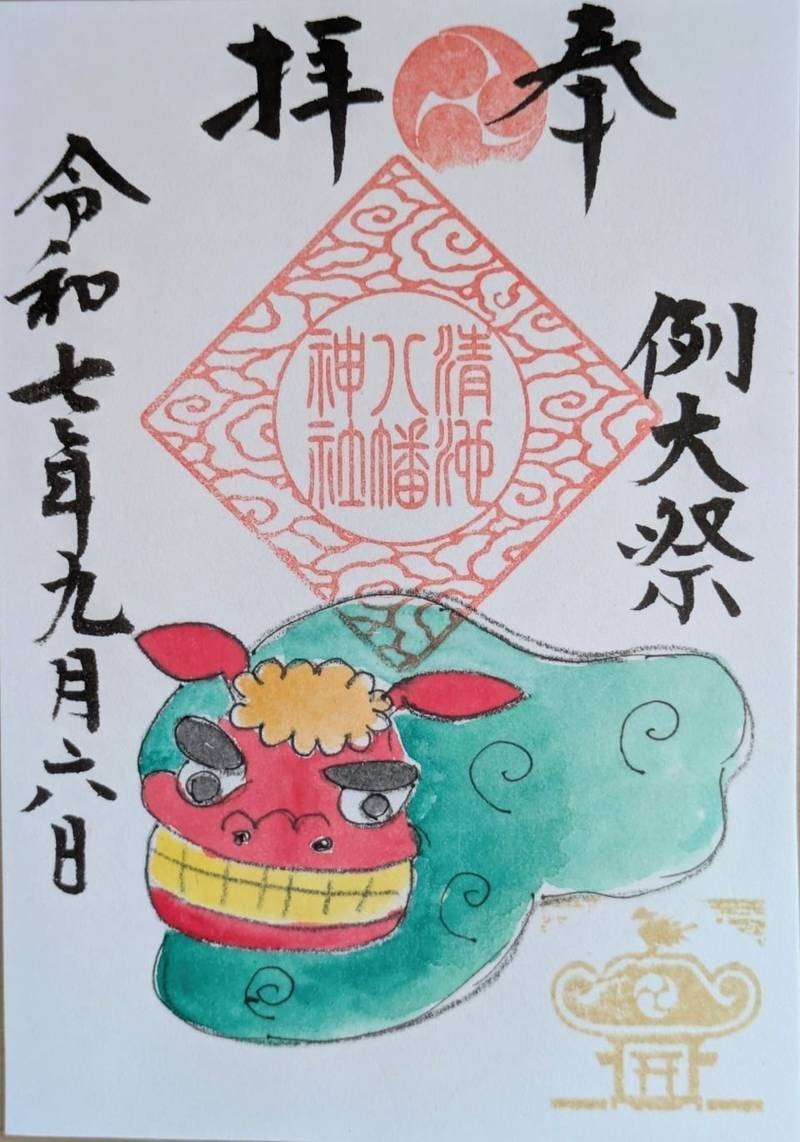 奉拝
例大祭
清池
八幡
神社
令和七年九月六日